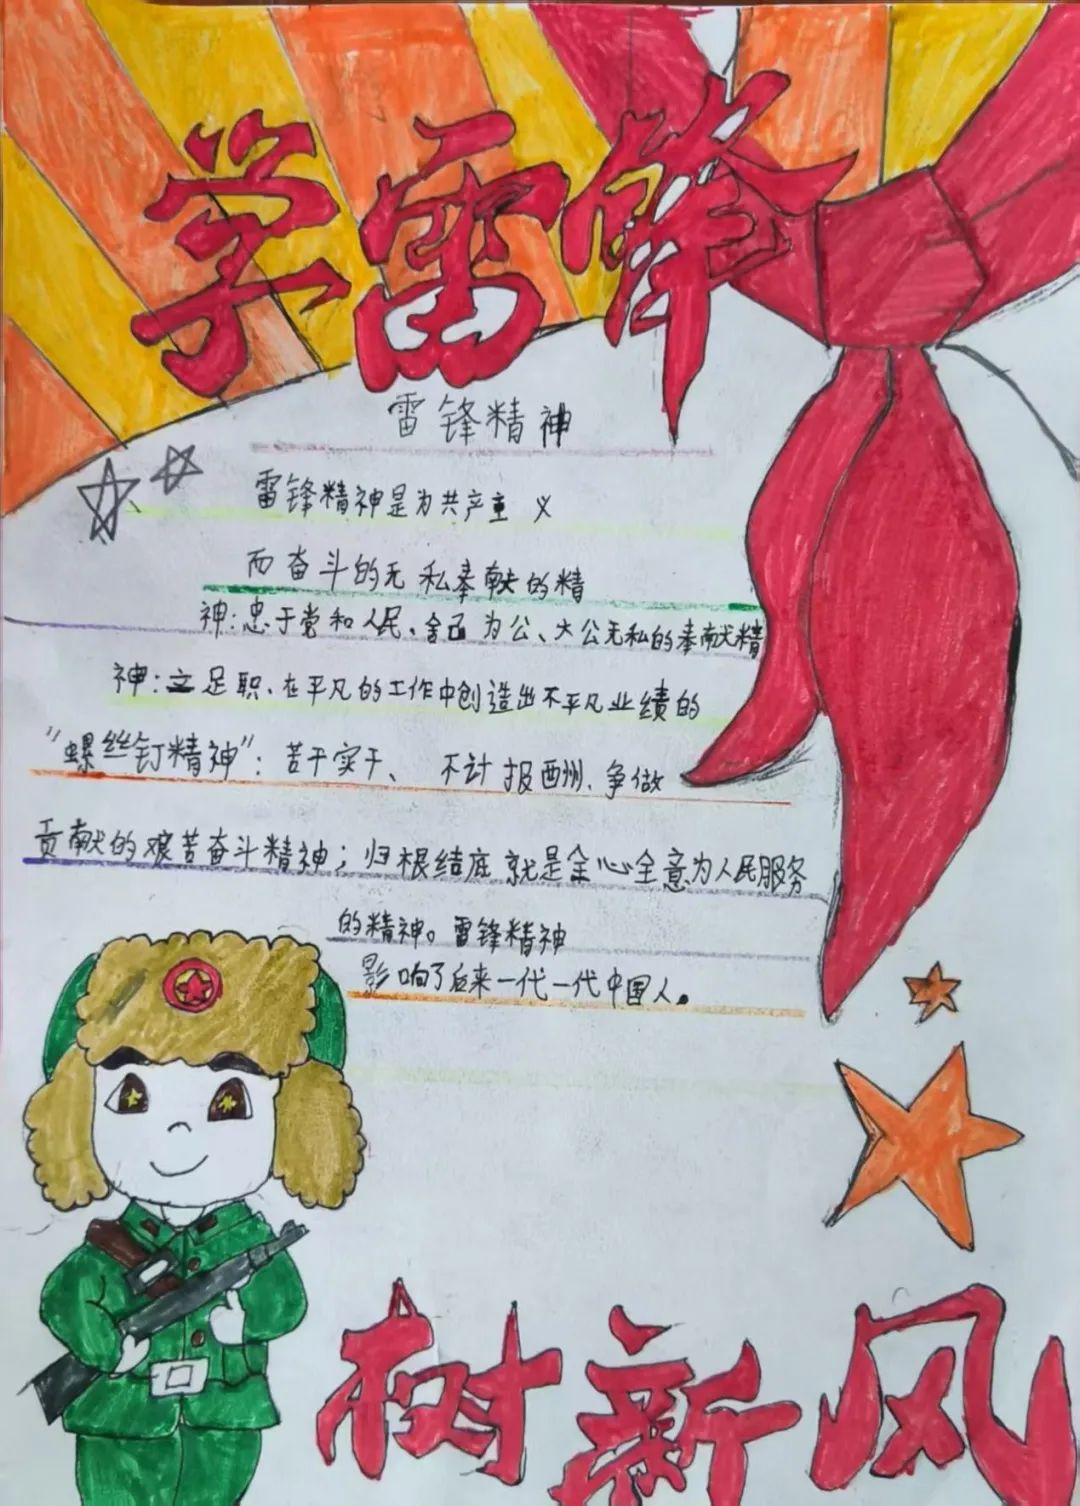 学雷锋
雷锋精神
雷锋精神是为共产主义
而奋斗的无私奉献的精
神:忠于党和人民、舍己为公、大公无私的奉献精
神:立足职、在平凡的工作中创造出不平凡业绩的
"螺丝钉精神":苦干实干、不计报酬、争做
贡献的艰苦奋斗精神;归根结底就是全心全意为人民服务
的精神。雷锋精神
影响了后来一代一代中国人。
树新风